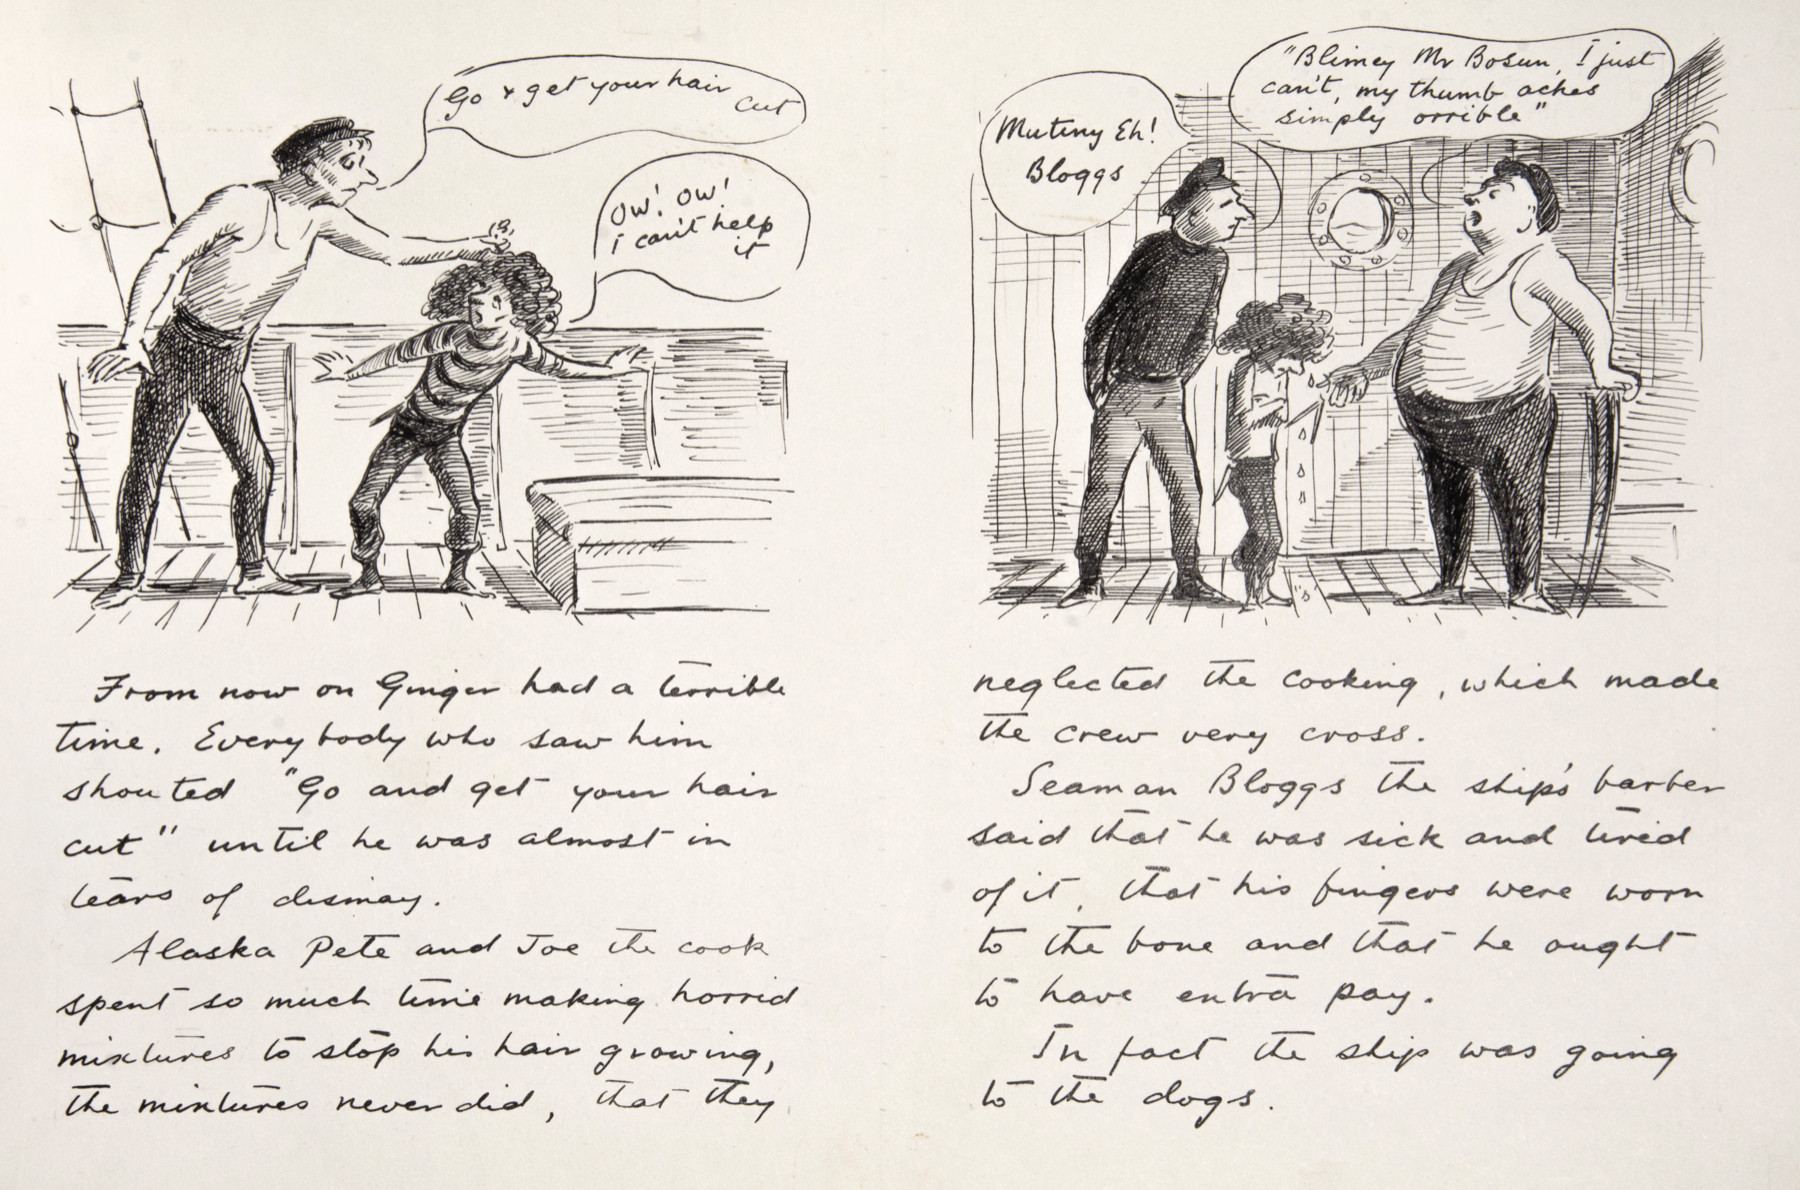 Go & get your hair
cut
OW! OW!
i can't help
it
From now on Ginger had a terrible
time. Everybody who saw him
shouted "Go and get your hair
cut" until he was almost in
tears of dismay.
Alaska Pete and Joe the cook
spent so much time making horrid
mixtures to stop his hair growing,
the mixtures never did, that they
Mutiny Eh!
Bloggs
"Blimey Mr Bosun, I just
can't, my thumb aches
simply orrible"
neglected the cooking, which made
the crew very cross.
Seaman Bloggs the ship's barber
said that he was sick and tired
of it, that his fingers were worn
to the bone and that he ought
to have extra pay.
In fact the ship was going
to the dogs.